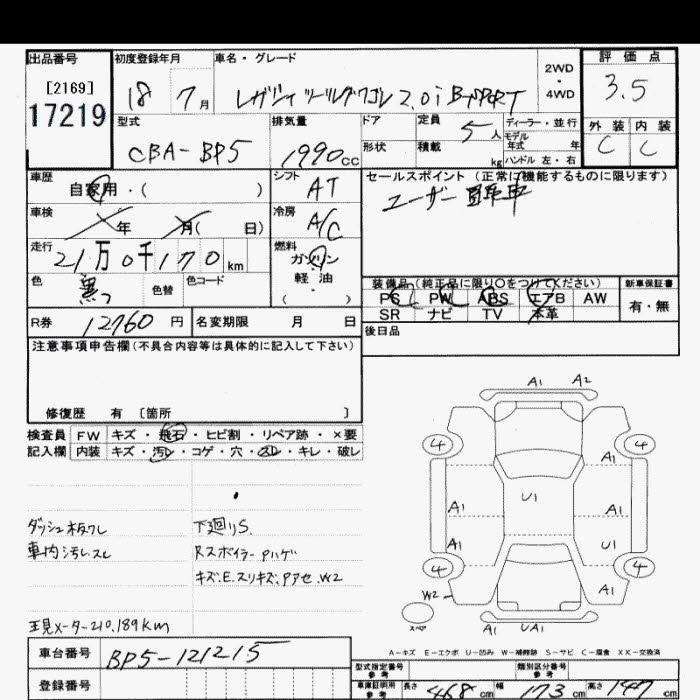 出品番号
[2169]
17219
初度登録年月
18 7月
車名・グレード
レガシィ ツーリングワゴン 2.0i B-SPORT
2WD
・
4WD
評価点
3.5
型式
CBA-BP5
排気量
1990cc
ドア
形状
定員
5人
積載
kg
ディーラー・並行
モデル
年式 年
ハンドル 左・右
外装 内装
C C
車歴
自家用・( )
シフト
AT
セールスポイント (正常に機能するものに限ります)
ユーザー買取車
車検
年 月( 日)
冷房
A/C
走行
21万0千170km
燃料
ガソリン
・
軽油
・
( )
色
黒
色替
色コード
装備品(純正品に限り○をつけてください)
PS PW ABS エアB AW
SR ナビ TV 本革
新車保証書
有・無
R券
12760円
名変期限 月 日
後日品
注意事項申告欄(不具合内容等は具体的に記入して下さい)
修復歴 有 〔箇所 〕
検査員
記入欄
FW キズ・飛石・ヒビ割・リペア跡・×要
内装 キズ・汚レ・コゲ・穴・スレ・キレ・破レ
ダッシュ板ワレ
車内汚レ.スレ
下廻りS.
Rスポイラー Pハゲ
キズ.E.スリキズ.Pアセ.W2
現メーター210.189Km
A1 A2
4 4
A1
A1 U1 A1
A1 U1
4 4
W2 A1
スペア
A1 UA1
A-キズ E-エクボ U-凹み W-補修跡 S-サビ C-腐食 XX-交換済
車台番号
BP5-121215
登録番号
型式指定番号
参考
類別区分番号
参考
車庫証明用
参考
長さ 468cm 幅 173cm 高さ 147cm